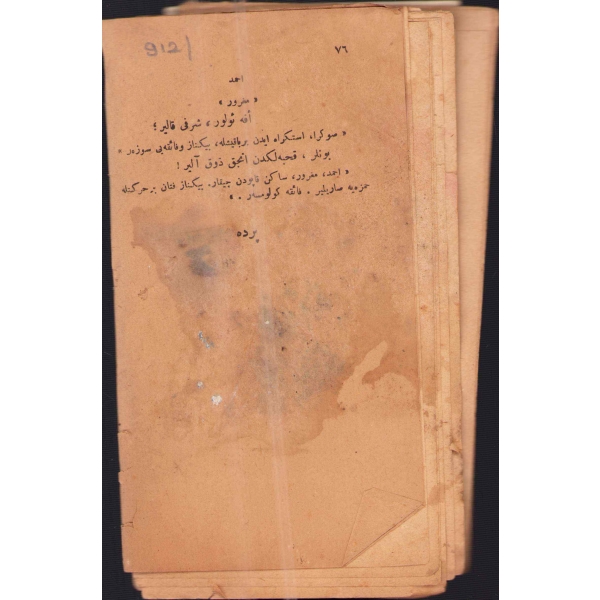 912/
٧٦
احمد
« مغرور »
أفه ئولور ، شرفى قالير ؛
« سوكرا، استكراه ايدن بر باقيشله، بيكناز و فائقه‌يى سوزەر »
بونلر ، قحبه‌لكدن آنجق ذوق آلير !
« احمد، مغرور، ساكن قاپودن چيقار. بيكناز فتان بر حركتله
حمزه‌يه صاريلير . فائقه كولومسەر . »
پرده